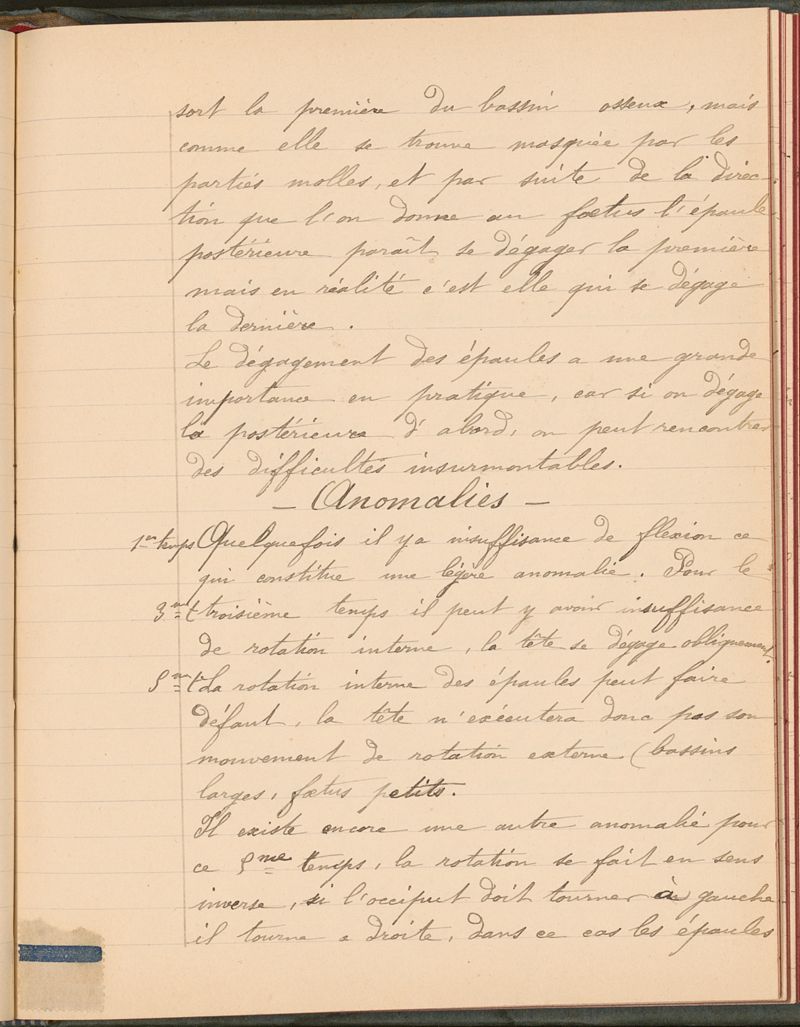 sort la première du bassin osseux, mais
comme elle se trouve masquée par les
parties molles, et par suite de la direc-
tion que l'on donne au fœtus l'épaule
postérieure paraît se dégager la première
mais en réalité c'est elle qui se dégage
la dernière.
Le dégagement des épaules a une grande
importance en pratique, car si on dégage
la postérieure d'abord, on peut rencontrer
des difficultés insurmontables.
- Anomalies -
1er temps Quelquefois il y a insuffisance de flexion ce
qui constitue une légère anomalie. Pour le
3me t troisième temps il peut y avoir insuffisance
de rotation interne, la tête se dégage obliquement.
5me t La rotation interne des épaules peut faire
défaut, la tête n'exécutera donc pas son
mouvement de rotation externe. (bassins
larges, fœtus petits.
Il existe encore une autre anomalie pour
ce 5me temps, la rotation se fait en sens
inverse, si l'occiput doit tourner à gauche
il tourne a droite, dans ce cas les épaules